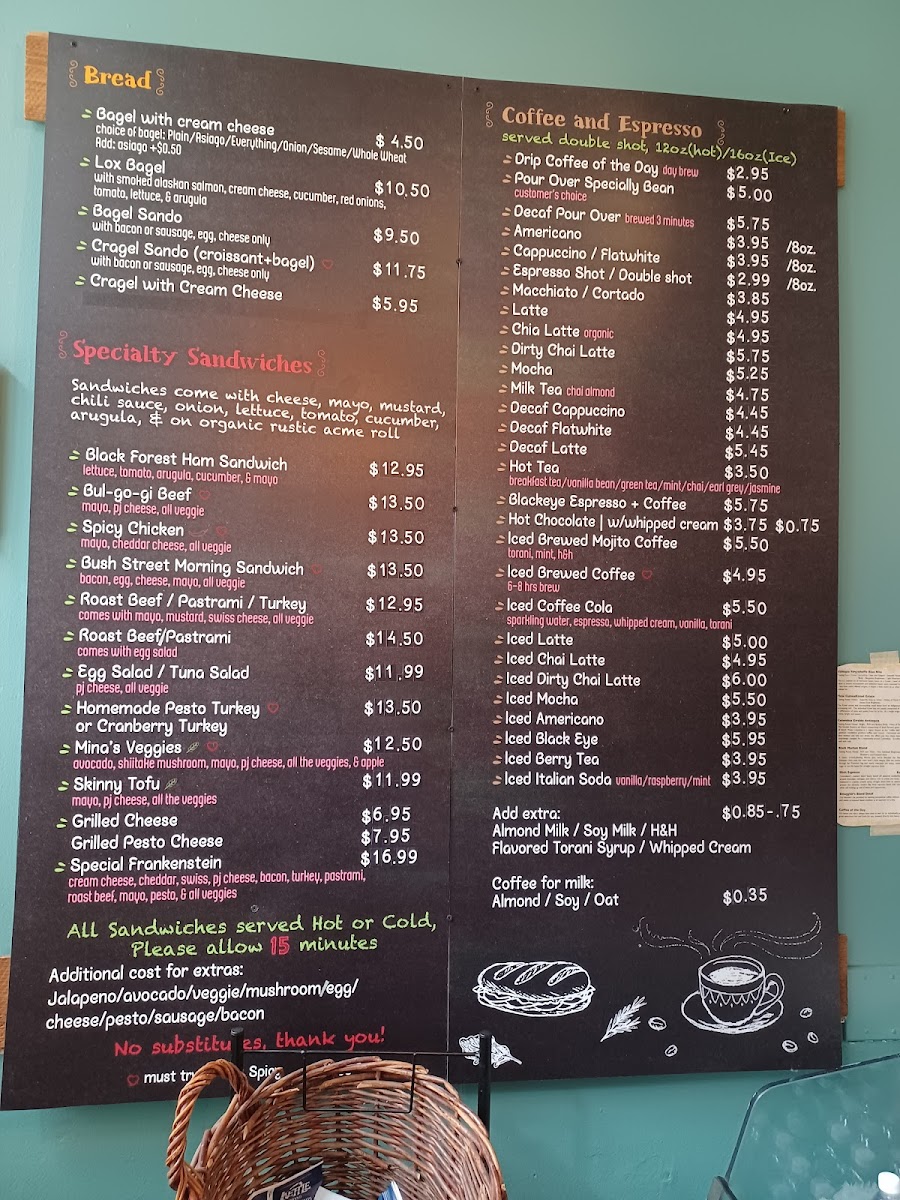 Bread
Bagel with cream cheese $ 4.50
choice of bagel: Plain/Asiago/Everything/Onion/Sesame/Whole Wheat
Add: asiago +$0.50
Lox Bagel $10.50
with smoked alaskan salmon, cream cheese, cucumber, red onions,
tomato, lettuce, & arugula
Bagel Sando $9.50
with bacon or sausage, egg, cheese only
Cragel Sando (croissant+bagel) $11.75
with bacon or sausage, egg, cheese only
Cragel with Cream Cheese $5.95
Specialty Sandwiches
Sandwiches come with cheese, mayo, mustard,
chili sauce, onion, lettuce, tomato, cucumber,
arugula, & on organic rustic acme roll
Black Forest Ham Sandwich $12.95
lettuce, tomato, arugula, cucumber, & mayo
Bul-go-gi Beef $13.50
mayo, pj cheese, all veggie
Spicy Chicken $13.50
mayo, cheddar cheese, all veggie
Bush Street Morning Sandwich $13.50
bacon, egg, cheese, mayo, all veggie
Roast Beef / Pastrami / Turkey $12.95
comes with mayo, mustard, swiss cheese, all veggie
Roast Beef/Pastrami $14.50
comes with egg salad
Egg Salad / Tuna Salad $11.99
pj cheese, all veggie
Homemade Pesto Turkey $13.50
or Cranberry Turkey
Mina's Veggies $12.50
avocado, shiitake mushroom, mayo, pj cheese, all the veggies, & apple
Skinny Tofu $11.99
mayo, pj cheese, all the veggies
Grilled Cheese $6.95
Grilled Pesto Cheese $7.95
Special Frankenstein $16.99
cream cheese, cheddar, swiss, pj cheese, bacon, turkey, pastrami,
roast beef, mayo, pesto, & all veggies
All Sandwiches served Hot or Cold,
Please allow 15 minutes
Additional cost for extras:
Jalapeno/avocado/veggie/mushroom/egg/
cheese/pesto/sausage/bacon
No substitutes, thank you!
must Spicy
Coffee and Espresso
served double shot, 12oz(hot)/16oz(Ice)
Drip Coffee of the Day day brew $2.95
Pour Over Specially Bean $5.00
customer's choice
Decaf Pour Over brewed 3 minutes $5.75
Americano $3.95 /8oz.
Cappuccino / Flatwhite $3.95 /8oz.
Espresso Shot / Double shot $2.99 /8oz.
Macchiato / Cortado $3.85
Latte $4.95
Chia Latte organic $4.95
Dirty Chai Latte $5.75
Mocha $5.25
Milk Tea chai almond $4.75
Decaf Cappuccino $4.45
Decaf Flatwhite $4.45
Decaf Latte $5.45
Hot Tea $3.50
breakfast tea/vanilla bean/green tea/mint/chai/earl grey/jasmine
Blackeye Espresso + Coffee $5.75
Hot Chocolate | w/whipped cream $3.75 $0.75
Iced Brewed Mojito Coffee $5.50
torani, mint, h&h
Iced Brewed Coffee $4.95
6-8 hrs brew
Iced Coffee Cola $5.50
sparkling water, espresso, whipped cream, vanilla, torani
Iced Latte $5.00
Iced Chai Latte $4.95
Iced Dirty Chai Latte $6.00
Iced Mocha $5.50
Iced Americano $3.95
Iced Black Eye $5.95
Iced Berry Tea $3.95
Iced Italian Soda vanilla/raspberry/mint $3.95
Add extra: $0.85-.75
Almond Milk / Soy Milk / H&H
Flavored Torani Syrup / Whipped Cream
Coffee for milk:
Almond / Soy / Oat $0.35